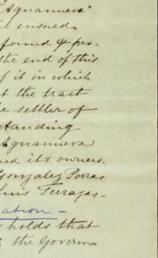 "Agnanueva"
it ensued
found & pro-
the end of this
of it in which
at the tract
the settler of
standing
Agnanueva
and its owners.
Gonzalez Porras
Luis Terrazas-
ation -
holds that
the Governm